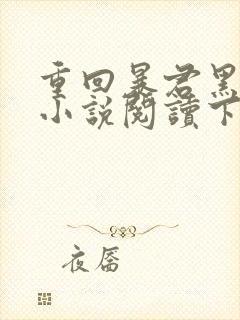 重回暴君黑
小說閱讀下
夜唇